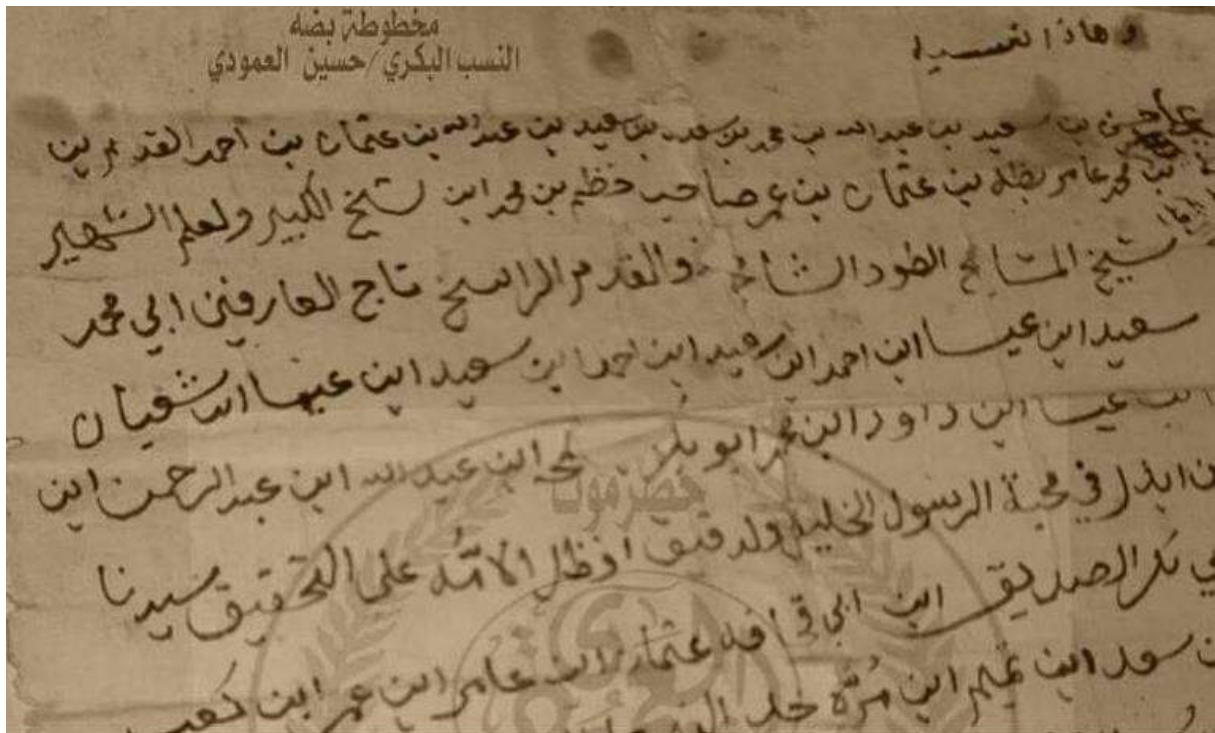 مخطوطة بضه
النسب البكري/حسين العمودي
وهاذا نسب
حسن بن سعيد بن عبدالله بن محمد بن سعيد بن سعيد بن عبدالله بن عثمان بن احمد القديم بن
ابن محمد عامر بظه بن عثمان بن عمر صاحب خظم بن محمد ابن شيخ الكبير ولعلم الشهير
شيخ المشايخ الطود الشامخ والقدم الراسخ تاج العارفين ابي محمد
سعيد ابن عيسا ابن احمد ابن سعيد ابن احمد ابن سعيد ابن شعبان
ابن عيسا ابن داوود ابن محمد ابو بكر ابن عبدالله ابن عبدالرحمن ابن
في محبة الرسول الخليل ولدقيق افظل الأمه على التحقيق سيدنا
بي بكر الصديق ابن ابي قحافه عثمان ابن عامر ابن عمر ابن كعب
ن سعد ابن تيم ابن مُرّه
حضرموت